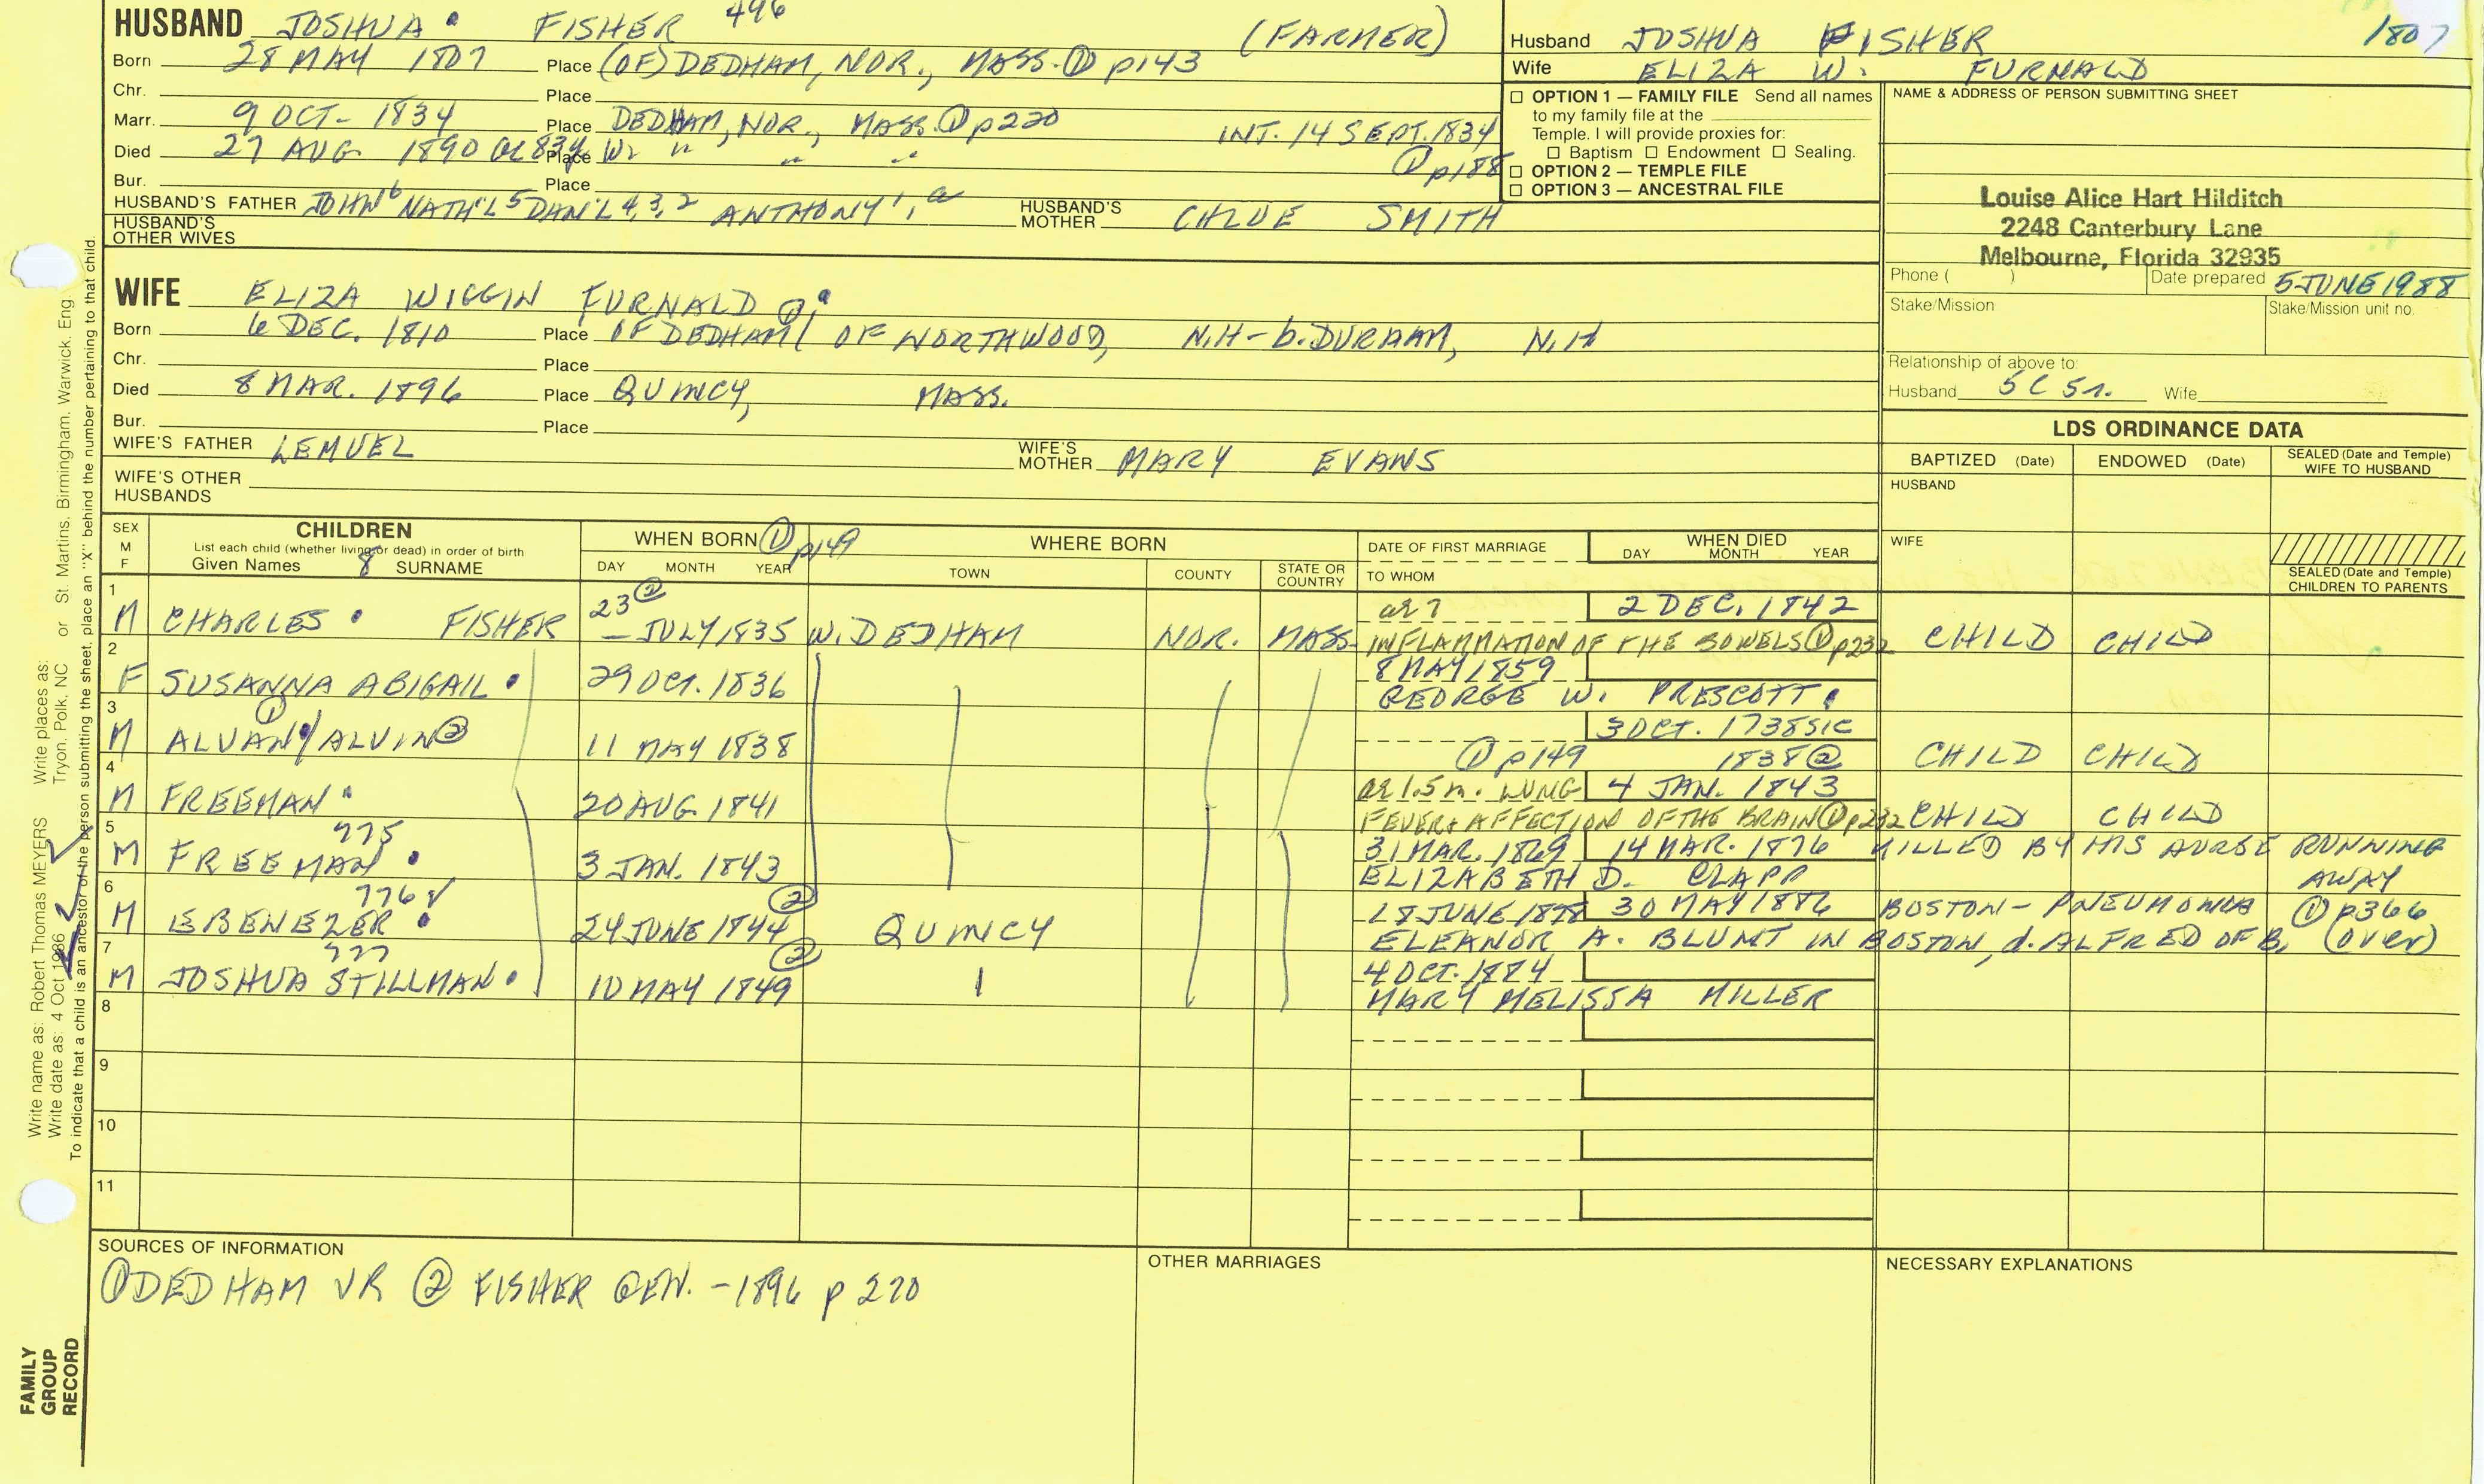 HUSBAND JOSHUA FISHER 496 (FARMER)
Born 28 MAY 1807 Place (OF) DEDHAM, NOR., MASS. ① p143
Chr. Place
Marr. 9 OCT- 1834 Place DEDHAM, NOR., MASS. ① p220 INT. 14 SEPT. 1834
Died 27 AUG. 1890 Place W. " " " ① p188
Bur. Place
HUSBAND'S FATHER JOHN⁶ NATH'L⁵ DAN'L ⁴,³,² ANTHONY¹, HUSBAND'S MOTHER CHLOE SMITH
HUSBAND'S OTHER WIVES
Husband JOSHUA FISHER 1807
Wife ELIZA W. FURNALD
☐ OPTION 1 — FAMILY FILE Send all names
to my family file at the
Temple. I will provide proxies for:
☐ Baptism ☐ Endowment ☐ Sealing.
☐ OPTION 2 — TEMPLE FILE
☐ OPTION 3 — ANCESTRAL FILE
NAME & ADDRESS OF PERSON SUBMITTING SHEET
Louise Alice Hart Hilditch
2248 Canterbury Lane
Melbourne, Florida 32935
Phone ( ) Date prepared 5 JUNE 1988
Stake/Mission Stake/Mission unit no.
Relationship of above to:
Husband 5C 5r. Wife
WIFE ELIZA WIGGIN FURNALD
Born 6 DEC. 1810 Place OF DEDHAM/ OF NORTHWOOD, N.H - b. DURHAM, N.H
Chr. Place
Died 8 MAR. 1896 Place QUINCY, MASS.
Bur. Place
WIFE'S FATHER LEMUEL WIFE'S MOTHER MARY EVANS
WIFE'S OTHER HUSBANDS
LDS ORDINANCE DATA
BAPTIZED (Date) ENDOWED (Date) SEALED (Date and Temple) WIFE TO HUSBAND
HUSBAND
WIFE
SEALED (Date and Temple) CHILDREN TO PARENTS
SEX M F CHILDREN
List each child (whether living or dead) in order of birth
Given Names 8 SURNAME
WHEN BORN ① p149
DAY MONTH YEAR
WHERE BORN
TOWN COUNTY STATE OR COUNTRY
DATE OF FIRST MARRIAGE
TO WHOM
WHEN DIED
DAY MONTH YEAR
1 M CHARLES FISHER 23② — JULY 1835 W. DEDHAM NOR. MASS. ae 7 2 DEC. 1842
INFLAMMATION OF THE BOWELS ① p232 CHILD CHILD
2 F SUSANNA ABIGAIL 29 OCT. 1836 8 MAY 1859
GEORGE W. PRESCOTT
3 M ALVAN①/ALVIN② 11 MAY 1838 3 OCT. 1738 SIC
① p149 1838② CHILD CHILD
4 M FREEMAN 20 AUG. 1841 ae 1.5 m. LUNG 4 JAN. 1843
FEVER & AFFECTION OF THE BRAIN ① p232 CHILD CHILD
5 M FREEMAN 775 3 JAN. 1843 31 MAR. 1869 14 MAR. 1876 KILLED BY HIS HORSE RUNNING AWAY
ELIZABETH D. CLAPP
6 M EBENEZER 776 ✓ 24 JUNE 1844② QUINCY 18 JUNE 30 MAY 1886 BOSTON - PNEUMONIA ① p366
ELEANOR A. BLUNT IN BOSTON, d. ALFRED OF B. (over)
7 M JOSHUA STILLMAN 777 10 MAY 1849② 4 OCT. 1874
MARY MELISSA MILLER
8
9
10
11
SOURCES OF INFORMATION
① DEDHAM VR ② FISHER GEN. - 1896 p 220
OTHER MARRIAGES
NECESSARY EXPLANATIONS
FAMILY GROUP RECORD
Write name as: Robert Thomas MEYERS Write places as: Tryon, Polk, NC or St. Martins, Birmingham, Warwick, Eng
Write date as: 4 Oct 1986
To indicate that a child is an ancestor of the person submitting the sheet, place an "X" behind the number pertaining to that child.